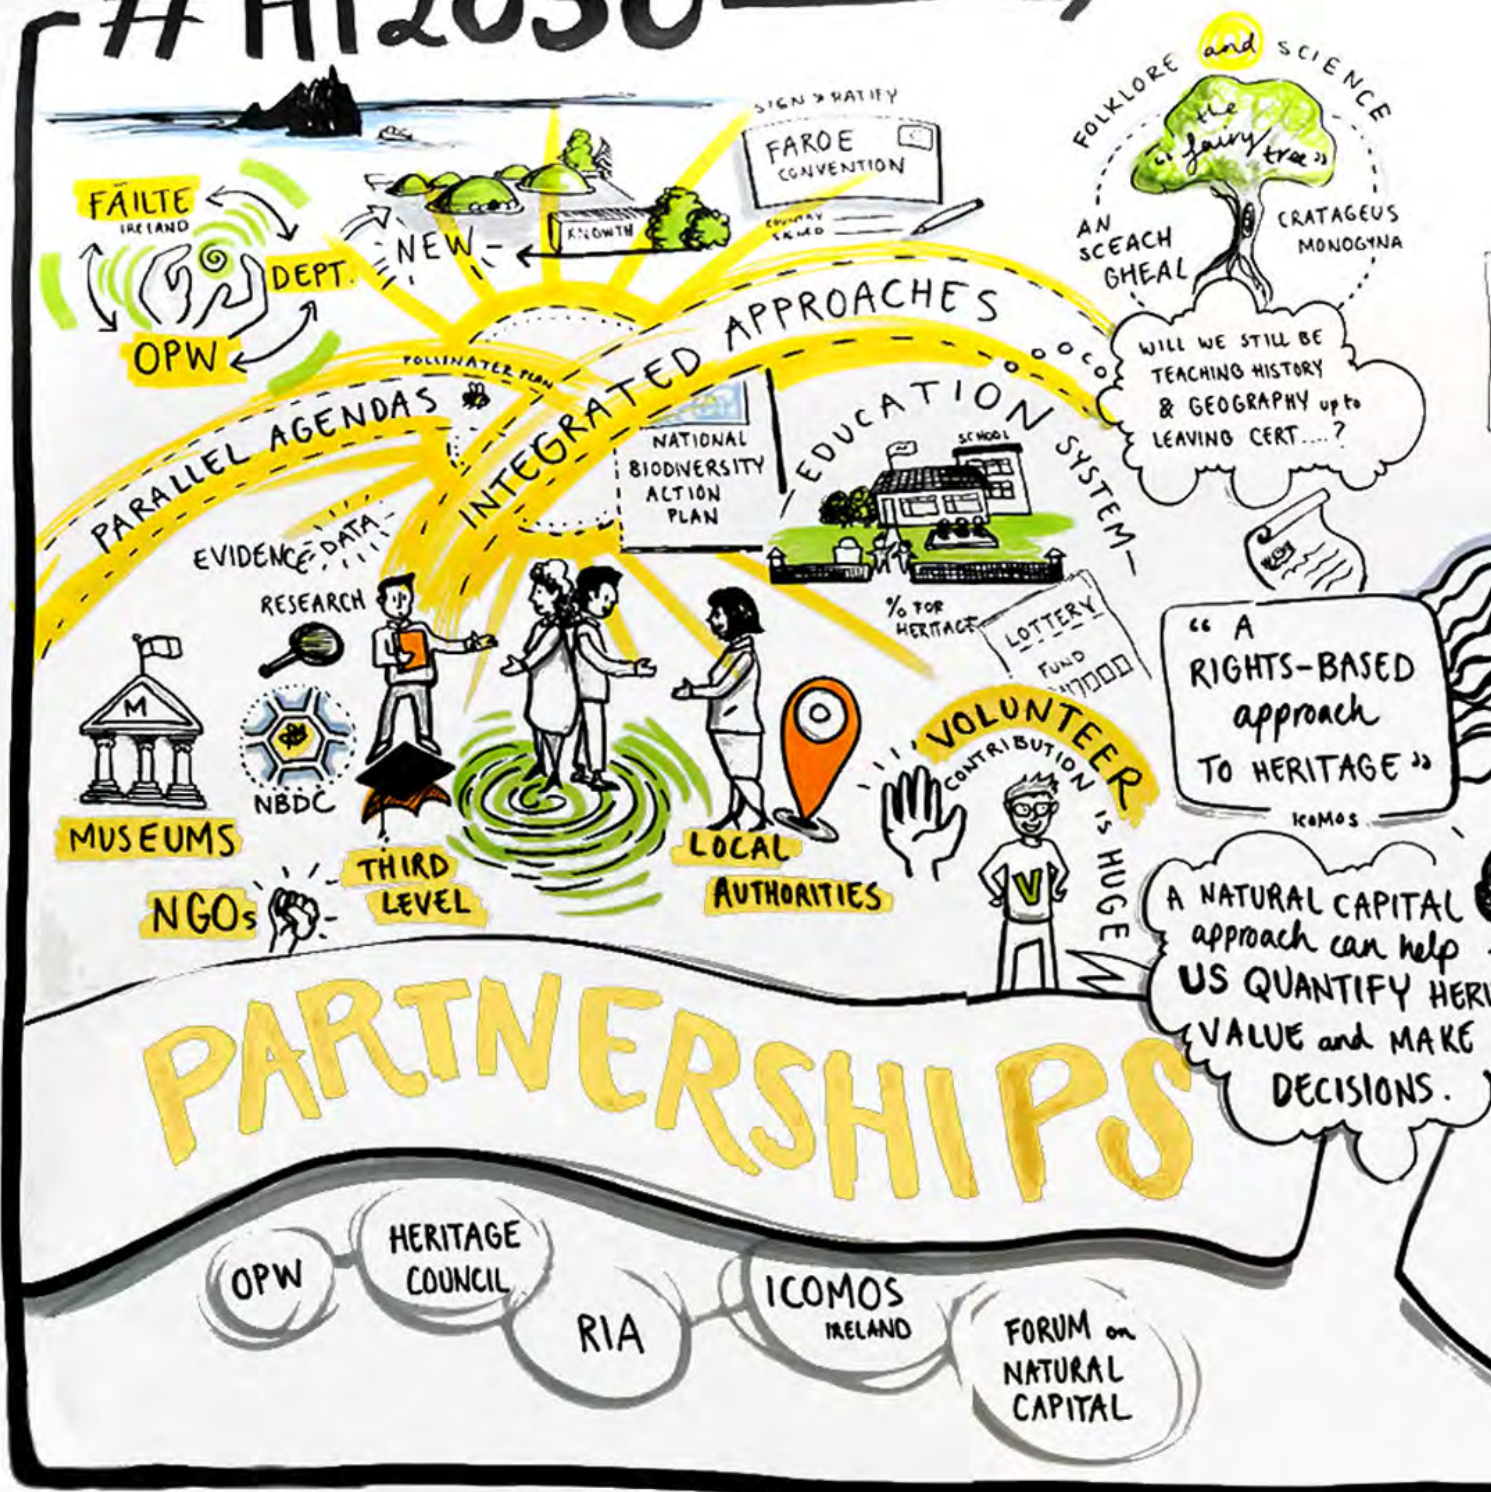 #HI2030
FÁILTE
IRELAND
DEPT.
OPW
NEW
KNOWTH
SIGN & RATIFY
FAROE
CONVENTION
COUNTRY
SIGNED
FOLKLORE and SCIENCE
the
"fairy tree"
AN
SCEACH
GHEAL
CRATAGEUS
MONOGYNA
WILL WE STILL BE
TEACHING HISTORY
& GEOGRAPHY up to
LEAVING CERT....?
PARALLEL AGENDAS
POLLINATER PLAN
INTEGRATED APPROACHES
NATIONAL
BIODIVERSITY
ACTION
PLAN
EDUCATION SYSTEM
SCHOOL
% FOR
HERITAGE
LOTTERY
FUND
EVIDENCE DATA
RESEARCH
M
MUSEUMS
NBDC
NGOs
THIRD
LEVEL
LOCAL
AUTHORITIES
VOLUNTEER
CONTRIBUTION IS HUGE
V
"A
RIGHTS-BASED
approach
TO HERITAGE"
ICOMOS
A NATURAL CAPITAL
approach can help
US QUANTIFY HERI
VALUE and MAKE
DECISIONS.
PARTNERSHIPS
OPW
HERITAGE
COUNCIL
RIA
ICOMOS
IRELAND
FORUM on
NATURAL
CAPITAL